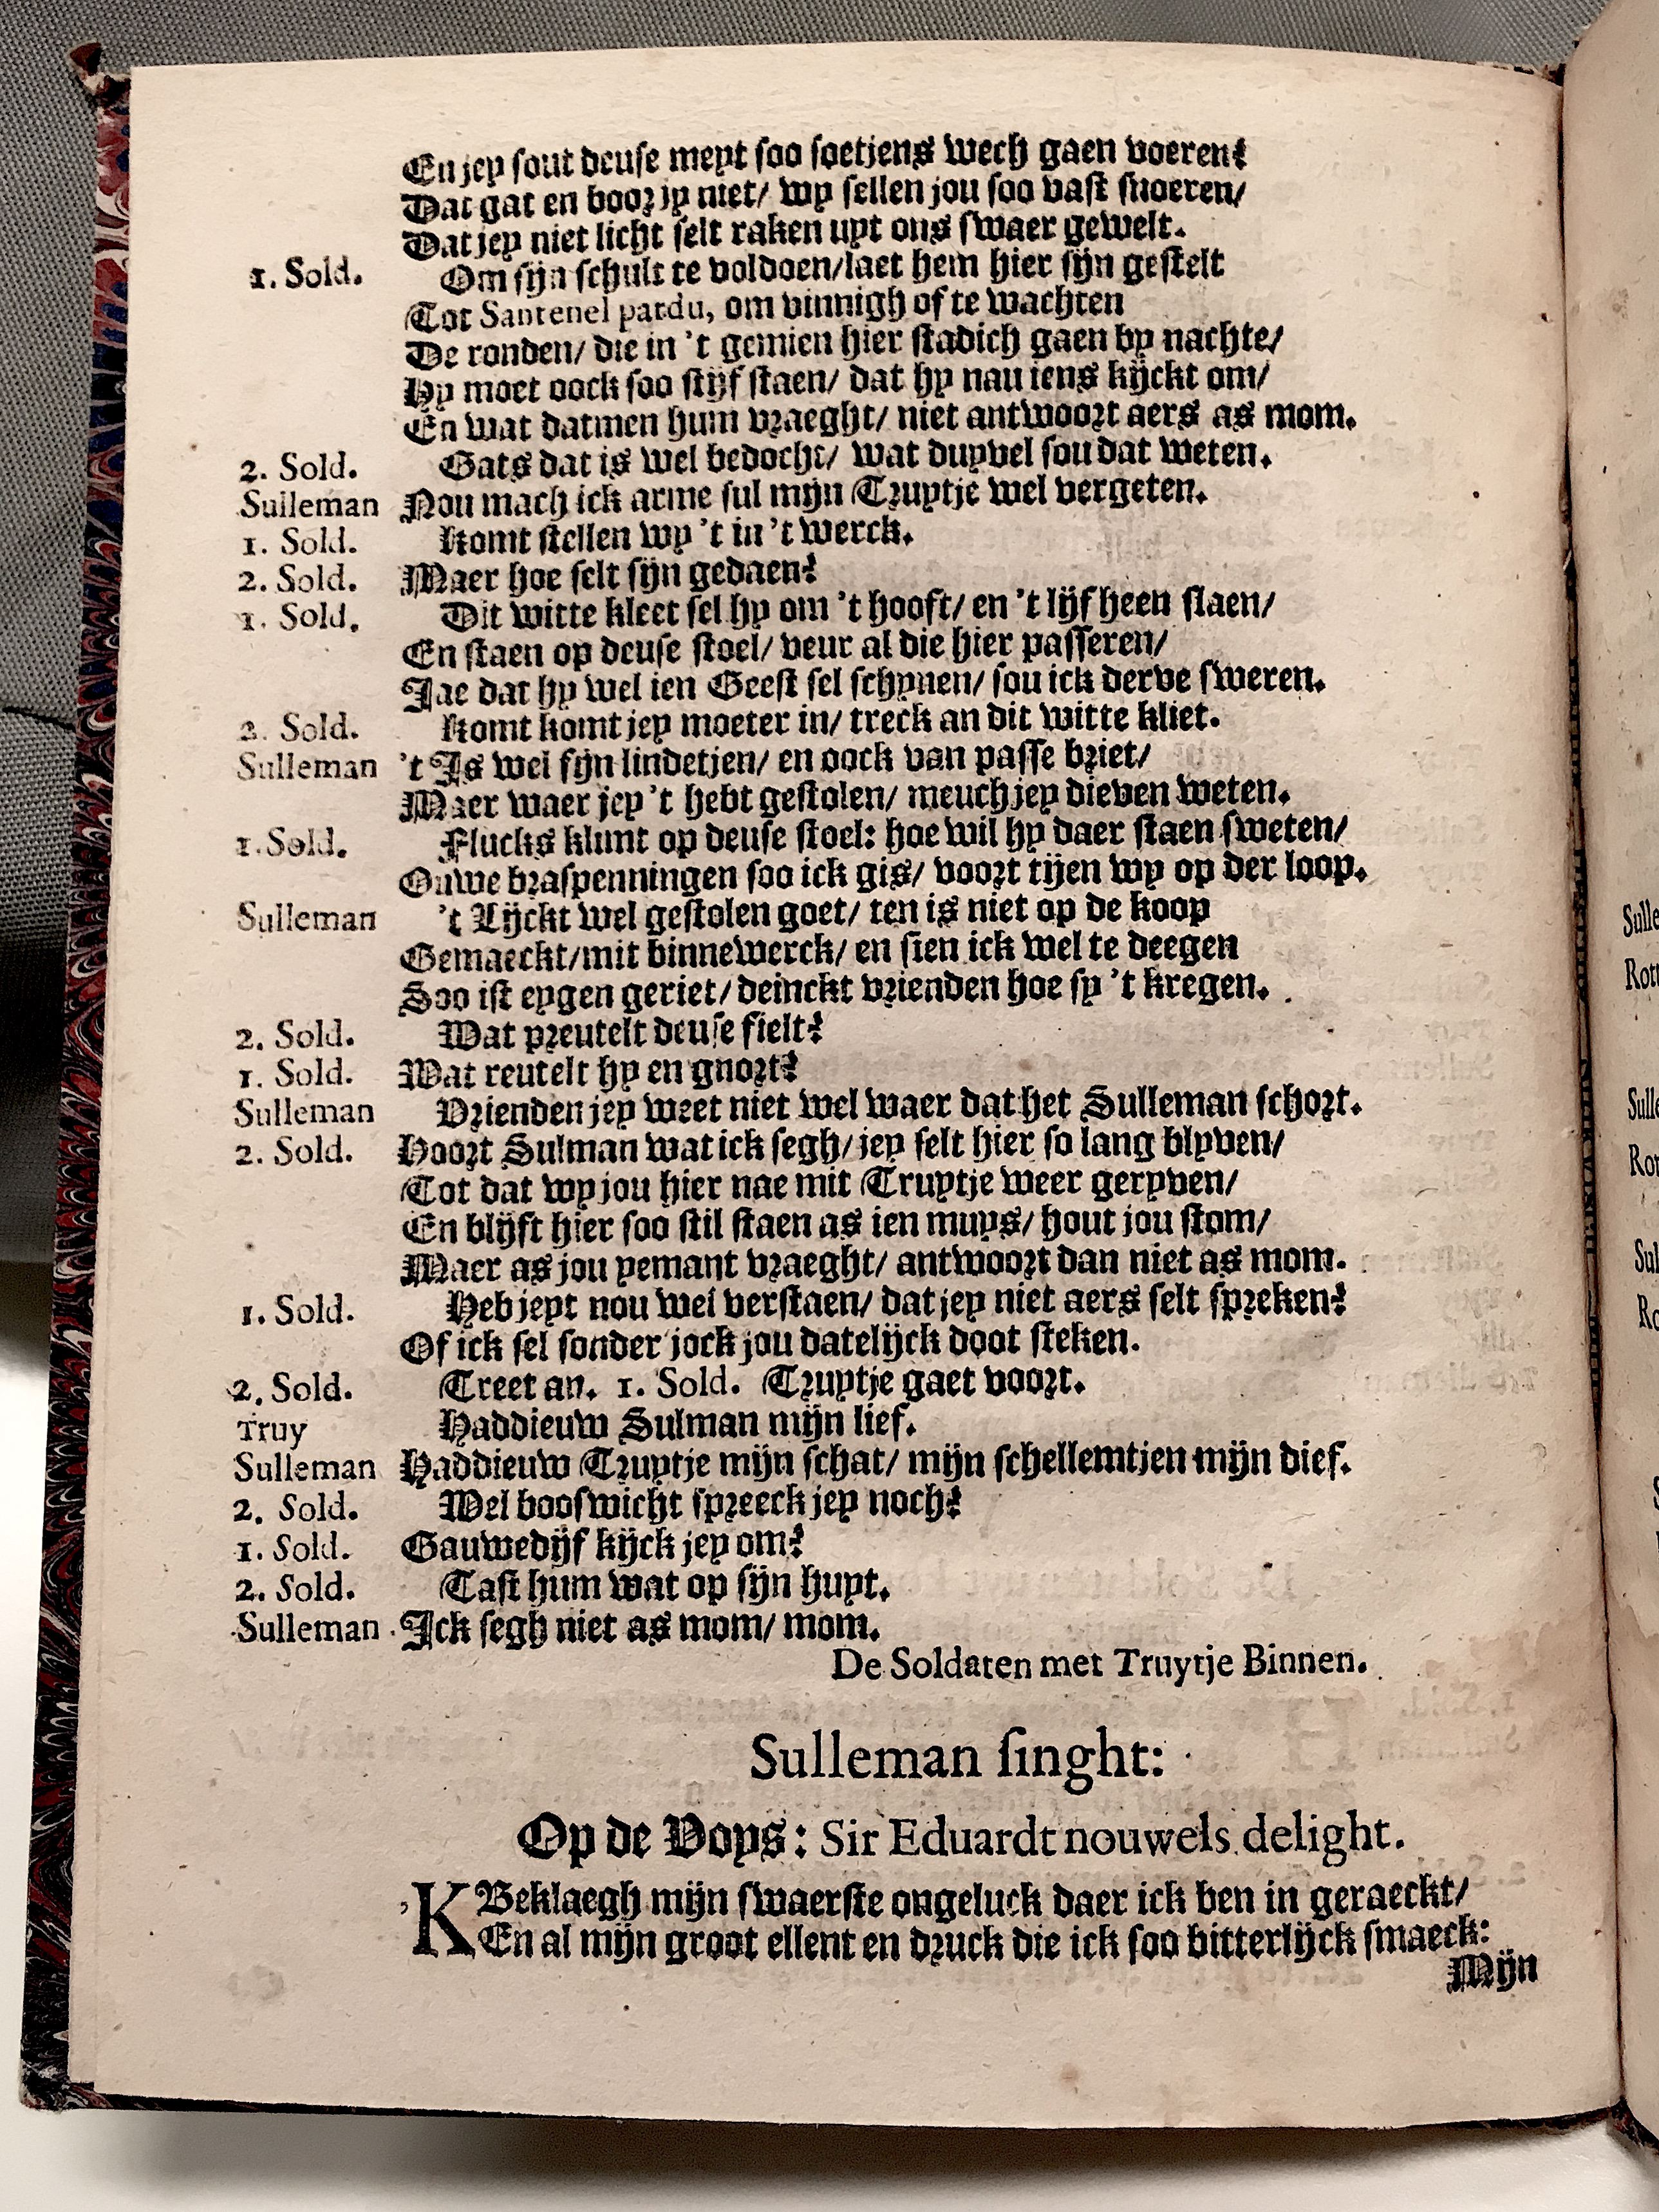 En jey sout deuse meyt soo soetjens wech gaen voeren?
Dat gat en boor jy niet/ wy sellen jou soo vast snoeren/
Dat jey niet licht selt raken uyt ons swaer gewelt.
1. Sold. Om sijn schult te voldoen/laet hem hier sijn gestelt
Tot Santenel pardu, om vinnigh of te wachten
De ronden/ die in 't gemien hier stadich gaen by nachte/
Hy moet oock soo stijf staen/ dat hy nau iens kijckt om/
En wat datmen hum vraeght/ niet antwoort aers as mom.
2. Sold. Gats dat is wel bedocht/ wat duyvel sou dat weten.
Sulleman Nou mach ick arme sul mijn Truytje wel vergeten.
1. Sold. Komt stellen wy 't in 't werck.
2. Sold. Maer hoe selt sijn gedaen?
1. Sold. Dit witte kleet sel hy om 't hooft/ en 't lijf heen slaen/
En staen op deuse stoel/ veur al die hier passeren/
Jae dat hy wel ien Geest sel schynen/ sou ick derve sweren.
2. Sold. Komt komt jey moeter in/ treck an dit witte kliet.
Sulleman 't Is wel fijn lindetjen/ en oock van passe briet/
Maer waer jey 't hebt gestolen/ meuch jey dieven weten.
1. Sold. Flucks klimt op deuse stoel: hoe wil hy daer staen sweten/
Ouwe braspenningen soo ick gis/ voort tijen wy op der loop.
Sulleman 't Lijckt wel gestolen goet/ ten is niet op de koop
Gemaeckt/mit binnewerck/ en sien ick wel te deegen
Soo ist eygen geriet/ deinckt vrienden hoe sy 't kregen.
2. Sold. Wat preutelt deuse fielt?
1. Sold. Wat reutelt hy en gnort?
Sulleman Vrienden jey weet niet wel waer dat het Sulleman schort.
2. Sold. Hoort Sulman wat ick segh/ jey selt hier so lang blyven/
Tot dat wy jou hier nae mit Truytje weer geryven/
En blijft hier soo stil staen as ien muys/ hout jou stom/
Maer as jou yemant vraeght/ antwoort dan niet as mom.
1. Sold. Heb jeyt nou wel verstaen/ dat jey niet aers selt spreken?
Of ick sel sonder jock jou datelijck doot steken.
2. Sold. Treet an. 1. Sold. Truytje gaet voort.
Truy Haddieuw Sulman mijn lief.
Sulleman Haddieuw Truytje mijn schat/ mijn schellemtjen mijn dief.
2. Sold. Wel booswicht spreeck jey noch?
1. Sold. Gauwedijf kijck jey om?
2. Sold. Tast hum wat op sijn huyt.
Sulleman Ick segh niet as mom/ mom.
De Soldaten met Truytje Binnen.
Sulleman singht:
Op de Voys: Sir Eduardt nouwels delight.
'K Beklaegh mijn swaerste ongeluck daer ick ben in geraeckt/
En al mijn groot ellent en druck die ick soo bitterlijck smaeck:
Mijn